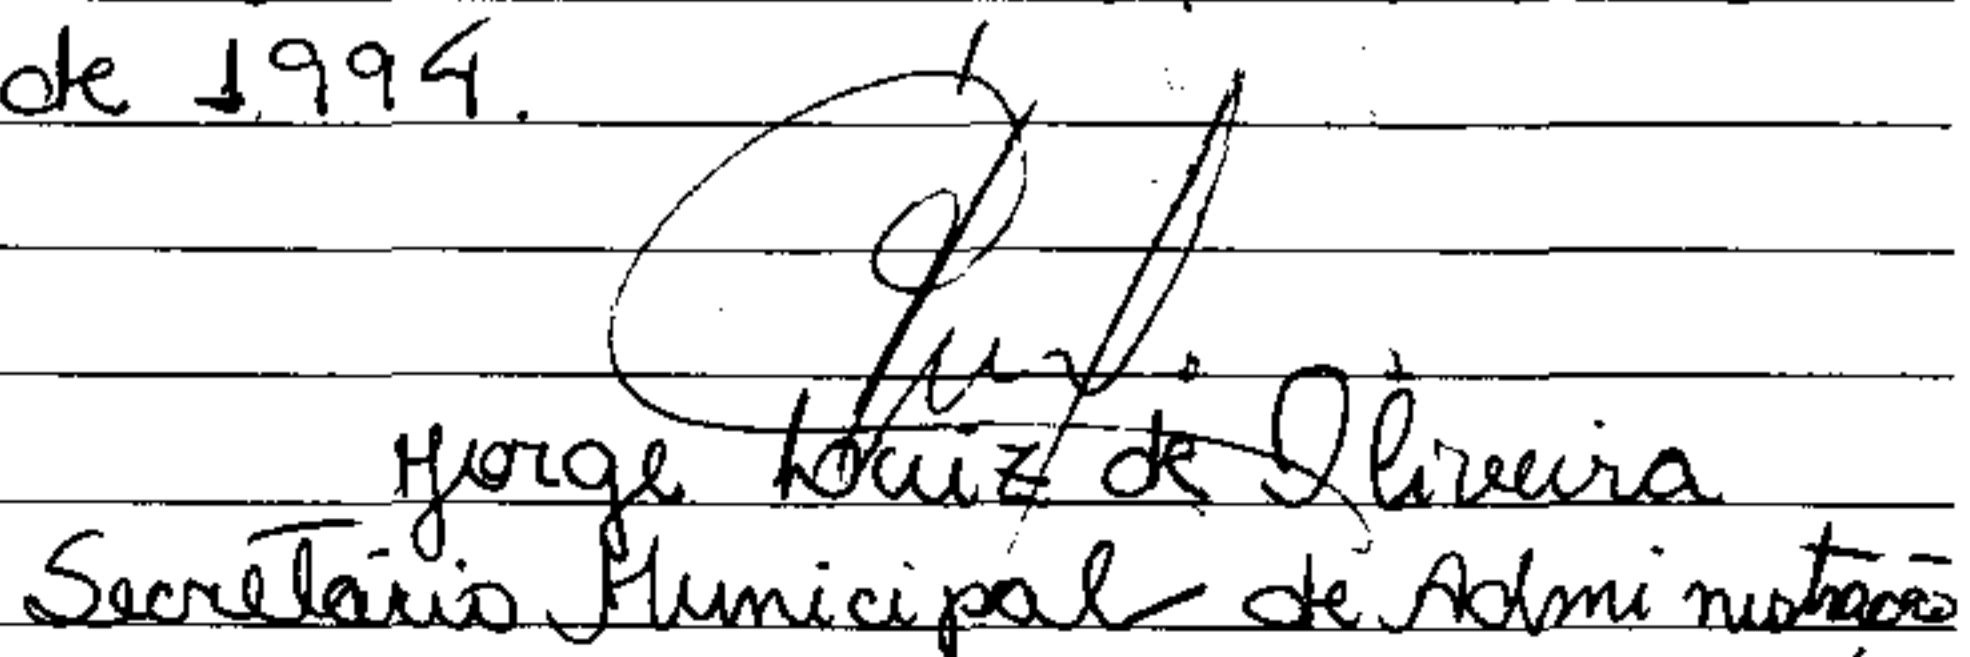 de 1994.
Jorge Luiz de Oliveira
Secretário Municipal de Administração